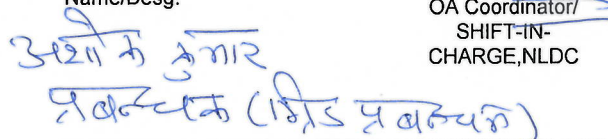 Name/Desg:
OA Coordinator/
SHIFT-IN-
CHARGE,NLDC
अशोक कुमार
प्रबन्धक (ग्रिड प्रबन्धन)